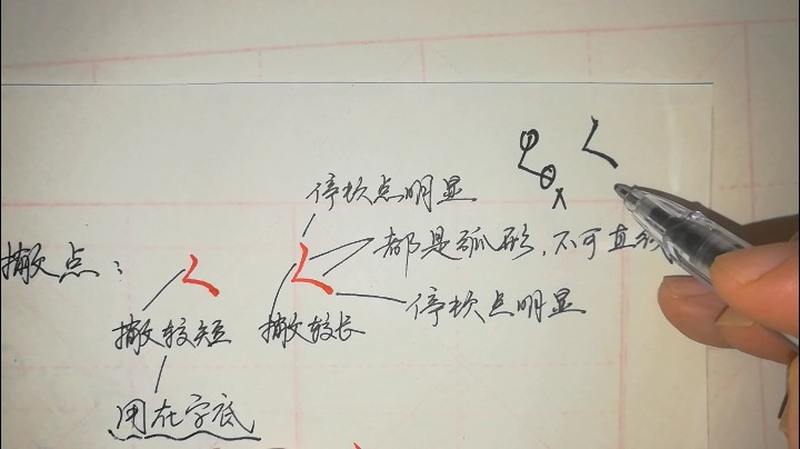 停顿点明显
都是弧形，不可直线
撇点：
停顿点明显
撇较短
撇较长
用在字底